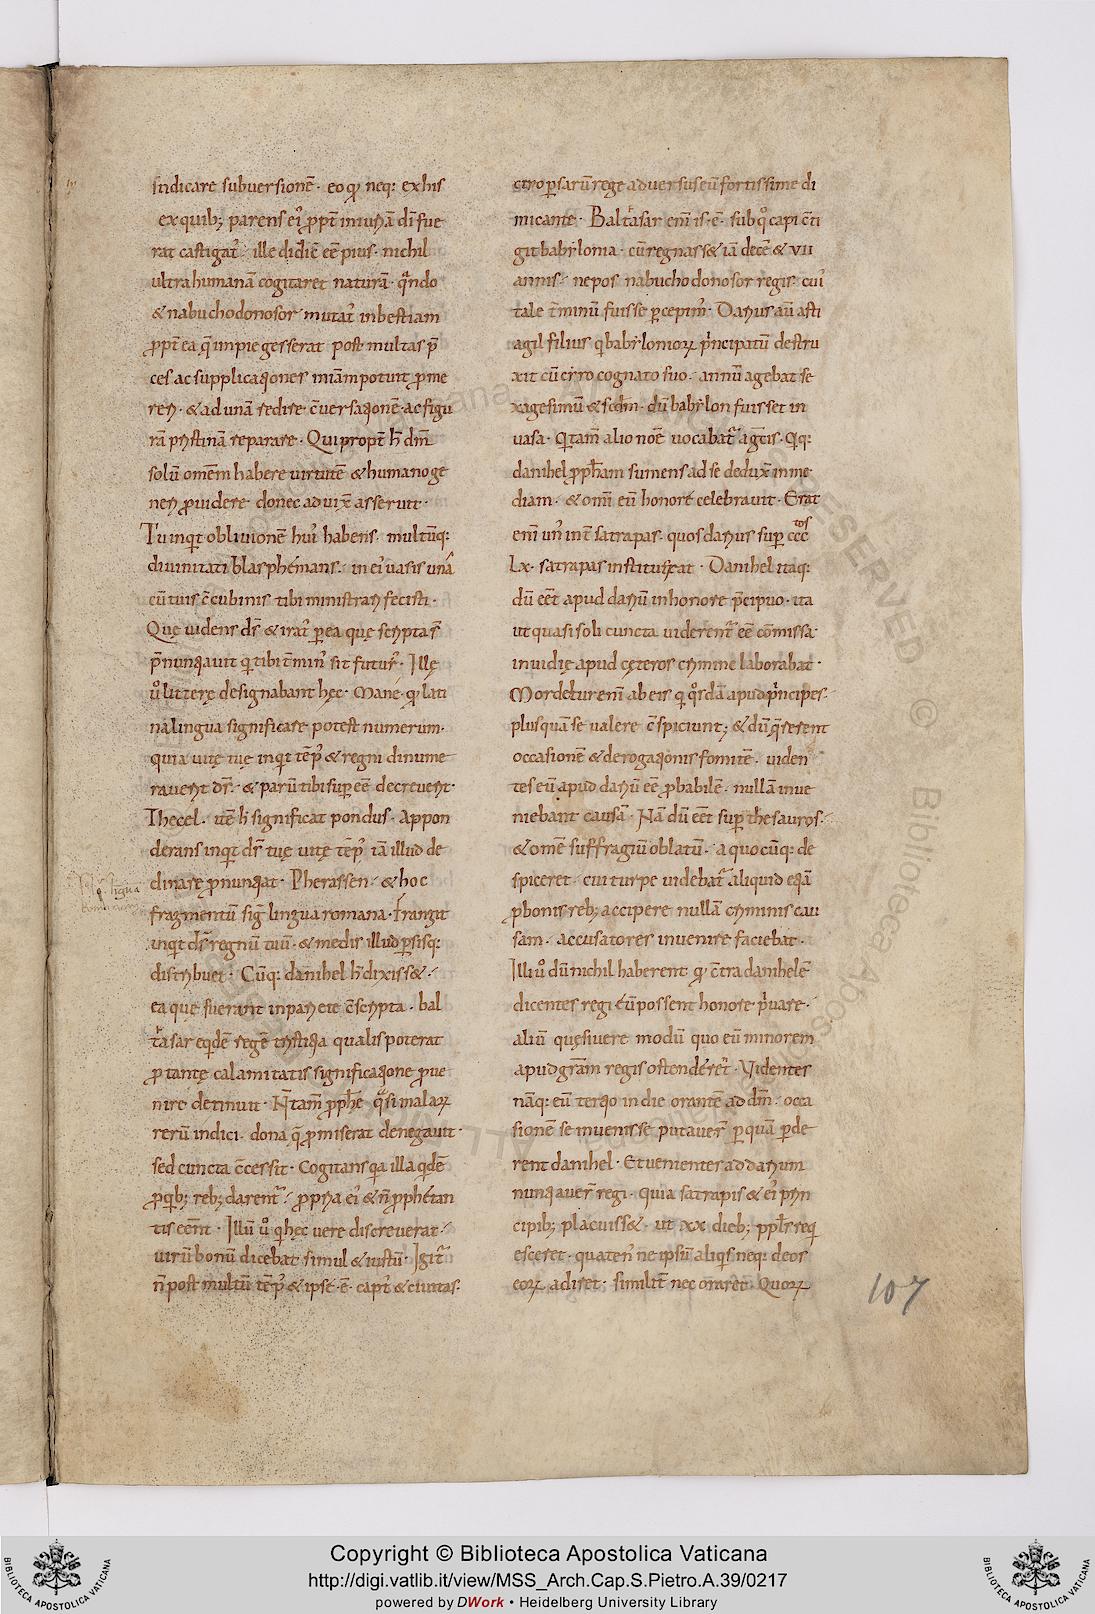 indicare subversionē· eo qđ neq: exhis
ex quib; parens eiꝰ ꝓpt̄ iniuriā dī fue
rat castigatꝰ· ille didicīē eē pius· nichil
ultra humanā cogitaret naturā· qn̄do
& nabuchodonosor mutatꝰ inbestiam
ꝓpt̄ ea q̄ impie gesserat post multas p̄
ces ac supplicationes miāmpotuit ꝓme
reri· & ad unā redire c̄versationē· ac figu
rā pristinā reparare· Quipropt̄ h̄ dm̄
solū omēm habere virtutē & humano ge
neri ꝓvidere donec advix̄ asseruit·
Tu inqt oblivionē huiꝰ habens· multūq:
divinitati blasphemans· in eiꝰ vasis unā
cū tuis c̄cubinis tibi ministrari fecisti·
Que videns ds̄ & iratꝰ ꝑ ea que scripta s̄
p̄nuntiavit qđ tibi t̄minꝰ sit futurꝰ· Ille
u̇ litterę designabant hęc· Mane· qđ lati
na lingua significare potest numerum·
quia vitę tuę inqt tēpꝰ & regni dinume
raverit ds̄· & parū tibi suꝑ eē decreverit·
Thecel· itē h̄ significat pondus· Appon
derans inqt ds̄ tuę vitę tēpꝰ iā illud de
clinare ꝓnuntiat· Pherassen· & hoc
fragmentū siḡ lingua romana· Frangit
inqt ds̄ regnū tuū· & medis illud ꝑsisq:
distribuet· Cūq: danihel h̄ dixiss&·
ea que fuerant inpariete c̄scripta· bal
tasar eqdē regē tristitia qualis poterat
ꝓ tantę calamitatis significatione ꝓve
nire detinuit· N̄ tam̄ ꝓphę q̄si malaꝝ
rerū indici· dona q̄ ꝓmiserat denegavit·
sed cuncta c̄cessit· Cogitans qa illa qdē
ꝓ qb; reb; darent̄· ꝓpria eiꝰ & n̄ ꝓphetan
tis eēnt· Illū u̇ qđ hęc vere discreverat·
virū bonū dicebat simul & iustū· Igit̄
n̄ post multū tēpꝰ & ipse· ē· captꝰ & civitas·
ctro ꝑsarū rege adversus eū fortissime di
micante· Baltasar enī is· ē· sub qo capi c̄ti
git babilonia· cū regnass& iā decē & VII
annis· nepos nabuchodonosor regis· cuiꝰ
tale t̄minū fuisse ꝑcepimꝰ· Darius aū asti
agil filius q babiloniorꝝ principatū destru
xit cū ciro cognato suo· annū agebat se
xagesimū & scdm̄· dū babilon fuisset in
vasa· Q tam̄ alio noē vocabat̄ agrecis· Qq:
danihel ꝓphām sumens ad se dedux̄ in me
diam· & omī eū honore celebravit· Erat
enī unꝰ int̄ satrapas· quos darius suꝑ ccctos
Lx· satrapas instituerat· Danihel itaq:
dū eēt apud dariū inhonore p̄cipuo· ita
ut quasi soli cuncta viderent̄ eē cōmissa·
invidię apud cęteros crimine laborabat·
Mordetur enī ab eis q qosdā apud principes·
plus quā se valere c̄spiciunt; & dū q̄rerent
occasionē & derogationis fomitē· viden
tes eū apud dariū eē ꝓbabilē· nullā inve
niebant causā· Nā dū eēt suꝑ thesauros·
& omē suffragiū oblatū· a quocūq: de
spiceret· cui turpe videbat̄ aliquid etiā
ꝓ bonis reb; accipere nullā criminis cau
sam· accusatores invenire faciebat·
Illi u̇ dū nichil haberent qđ c̄tra danihelē
dicentes regi eū possent honore privare·
aliū quęsivere modū quo eū minorem
apud grām regis ostenderet· Videntes
nāq: eū tertio in die orantē ad dm̄· occa
sionē se invenisse putaverꝭ ꝑ quā ꝑde
rent danihel· Et venientes ad darium
nuntiaver̄ regi· quia satrapis & eiꝰ prin
cipib; placuiss&· ut xx dieb; pplꝰ req
esceret· quatenꝰ ne ipsū aliqs neq: deos
eoꝝ adiret· similit̄ nec oraret· Quoꝝ
107
Copyright © Biblioteca Apostolica Vaticana
http://digi.vatlib.it/view/MSS_Arch.Cap.S.Pietro.A.39/0217
powered by DWork • Heidelberg University Library
BIBLIOTECA APOSTOLICA VATICANA
BIBLIOTECA APOSTOLICA VATICANA